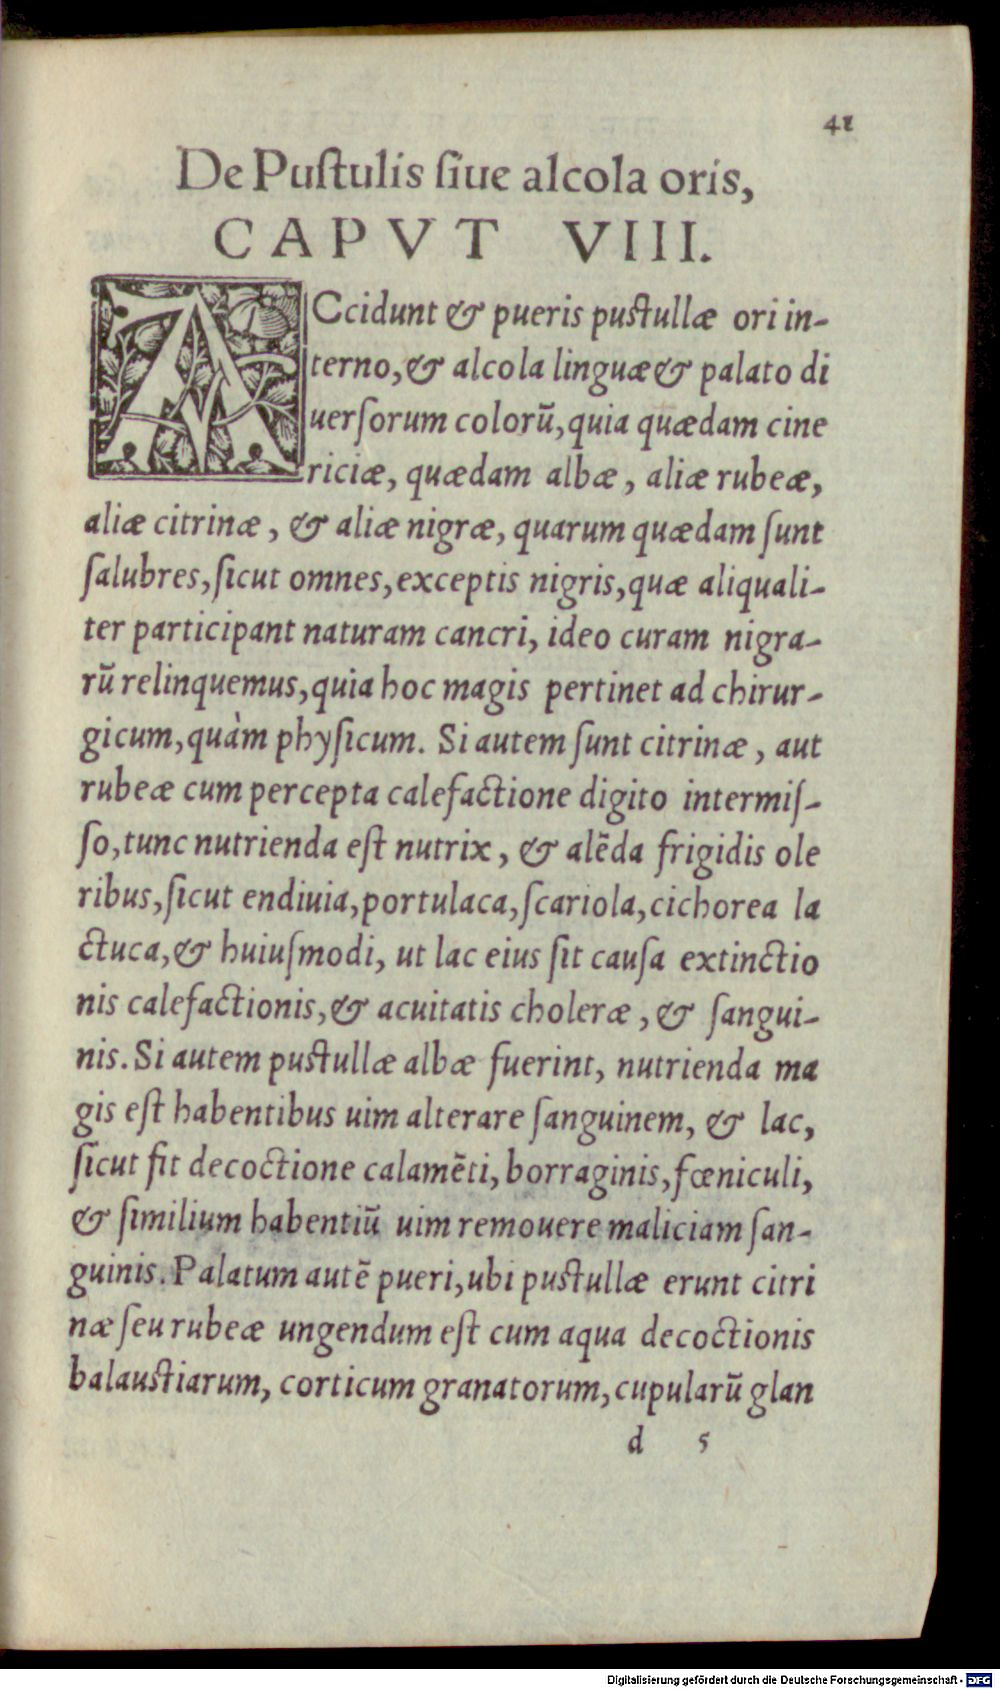 41
De Pustulis siue alcola oris,
CAPVT VIII.
ACcidunt & pueris pustullæ ori in-
terno, & alcola linguæ & palato di
uersorum colorū, quia quædam cine
riciæ, quædam albæ, aliæ rubeæ,
aliæ citrinæ, & aliæ nigræ, quarum quædam sunt
salubres, sicut omnes, exceptis nigris, quæ aliquali-
ter participant naturam cancri, ideo curam nigra-
rū relinquemus, quia hoc magis pertinet ad chirur-
gicum, quàm physicum. Si autem sunt citrinæ, aut
rubeæ cum percepta calefactione digito intermis-
so, tunc nutrienda est nutrix, & alēda frigidis ole
ribus, sicut endiuia, portulaca, scariola, cichorea la
ctuca, & huiusmodi, ut lac eius sit causa extinctio
nis calefactionis, & acuitatis choleræ, & sangui-
nis. Si autem pustullæ albæ fuerint, nutrienda ma
gis est habentibus uim alterare sanguinem, & lac,
sicut fit decoctione calamēti, borraginis, fœniculi,
& similium habentiū uim remouere maliciam san-
guinis. Palatum autē pueri, ubi pustullæ erunt citri
næ seu rubeæ ungendum est cum aqua decoctionis
balaustiarum, corticum granatorum, cupularū glan
d 5
Digitalisierung gefördert durch die Deutsche Forschungsgemeinschaft - DFG